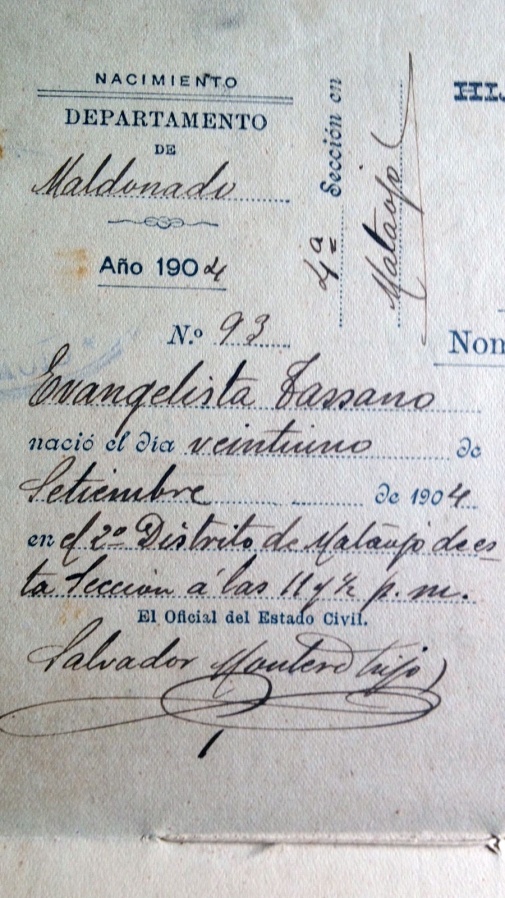 NACIMIENTO
DEPARTAMENTO
DE
Maldonado
Año 1904
4ª Sección en
Mataojo
N.º 93
Evangelista Tassano
nació el día veintiuno de
Setiembre de 1904
en el 2º Distrito de Mataojo de es-
ta Sección á las 11 y ½ p. m.
El Oficial del Estado Civil.
Salvador Montero (hijo)
HIJ
Nom